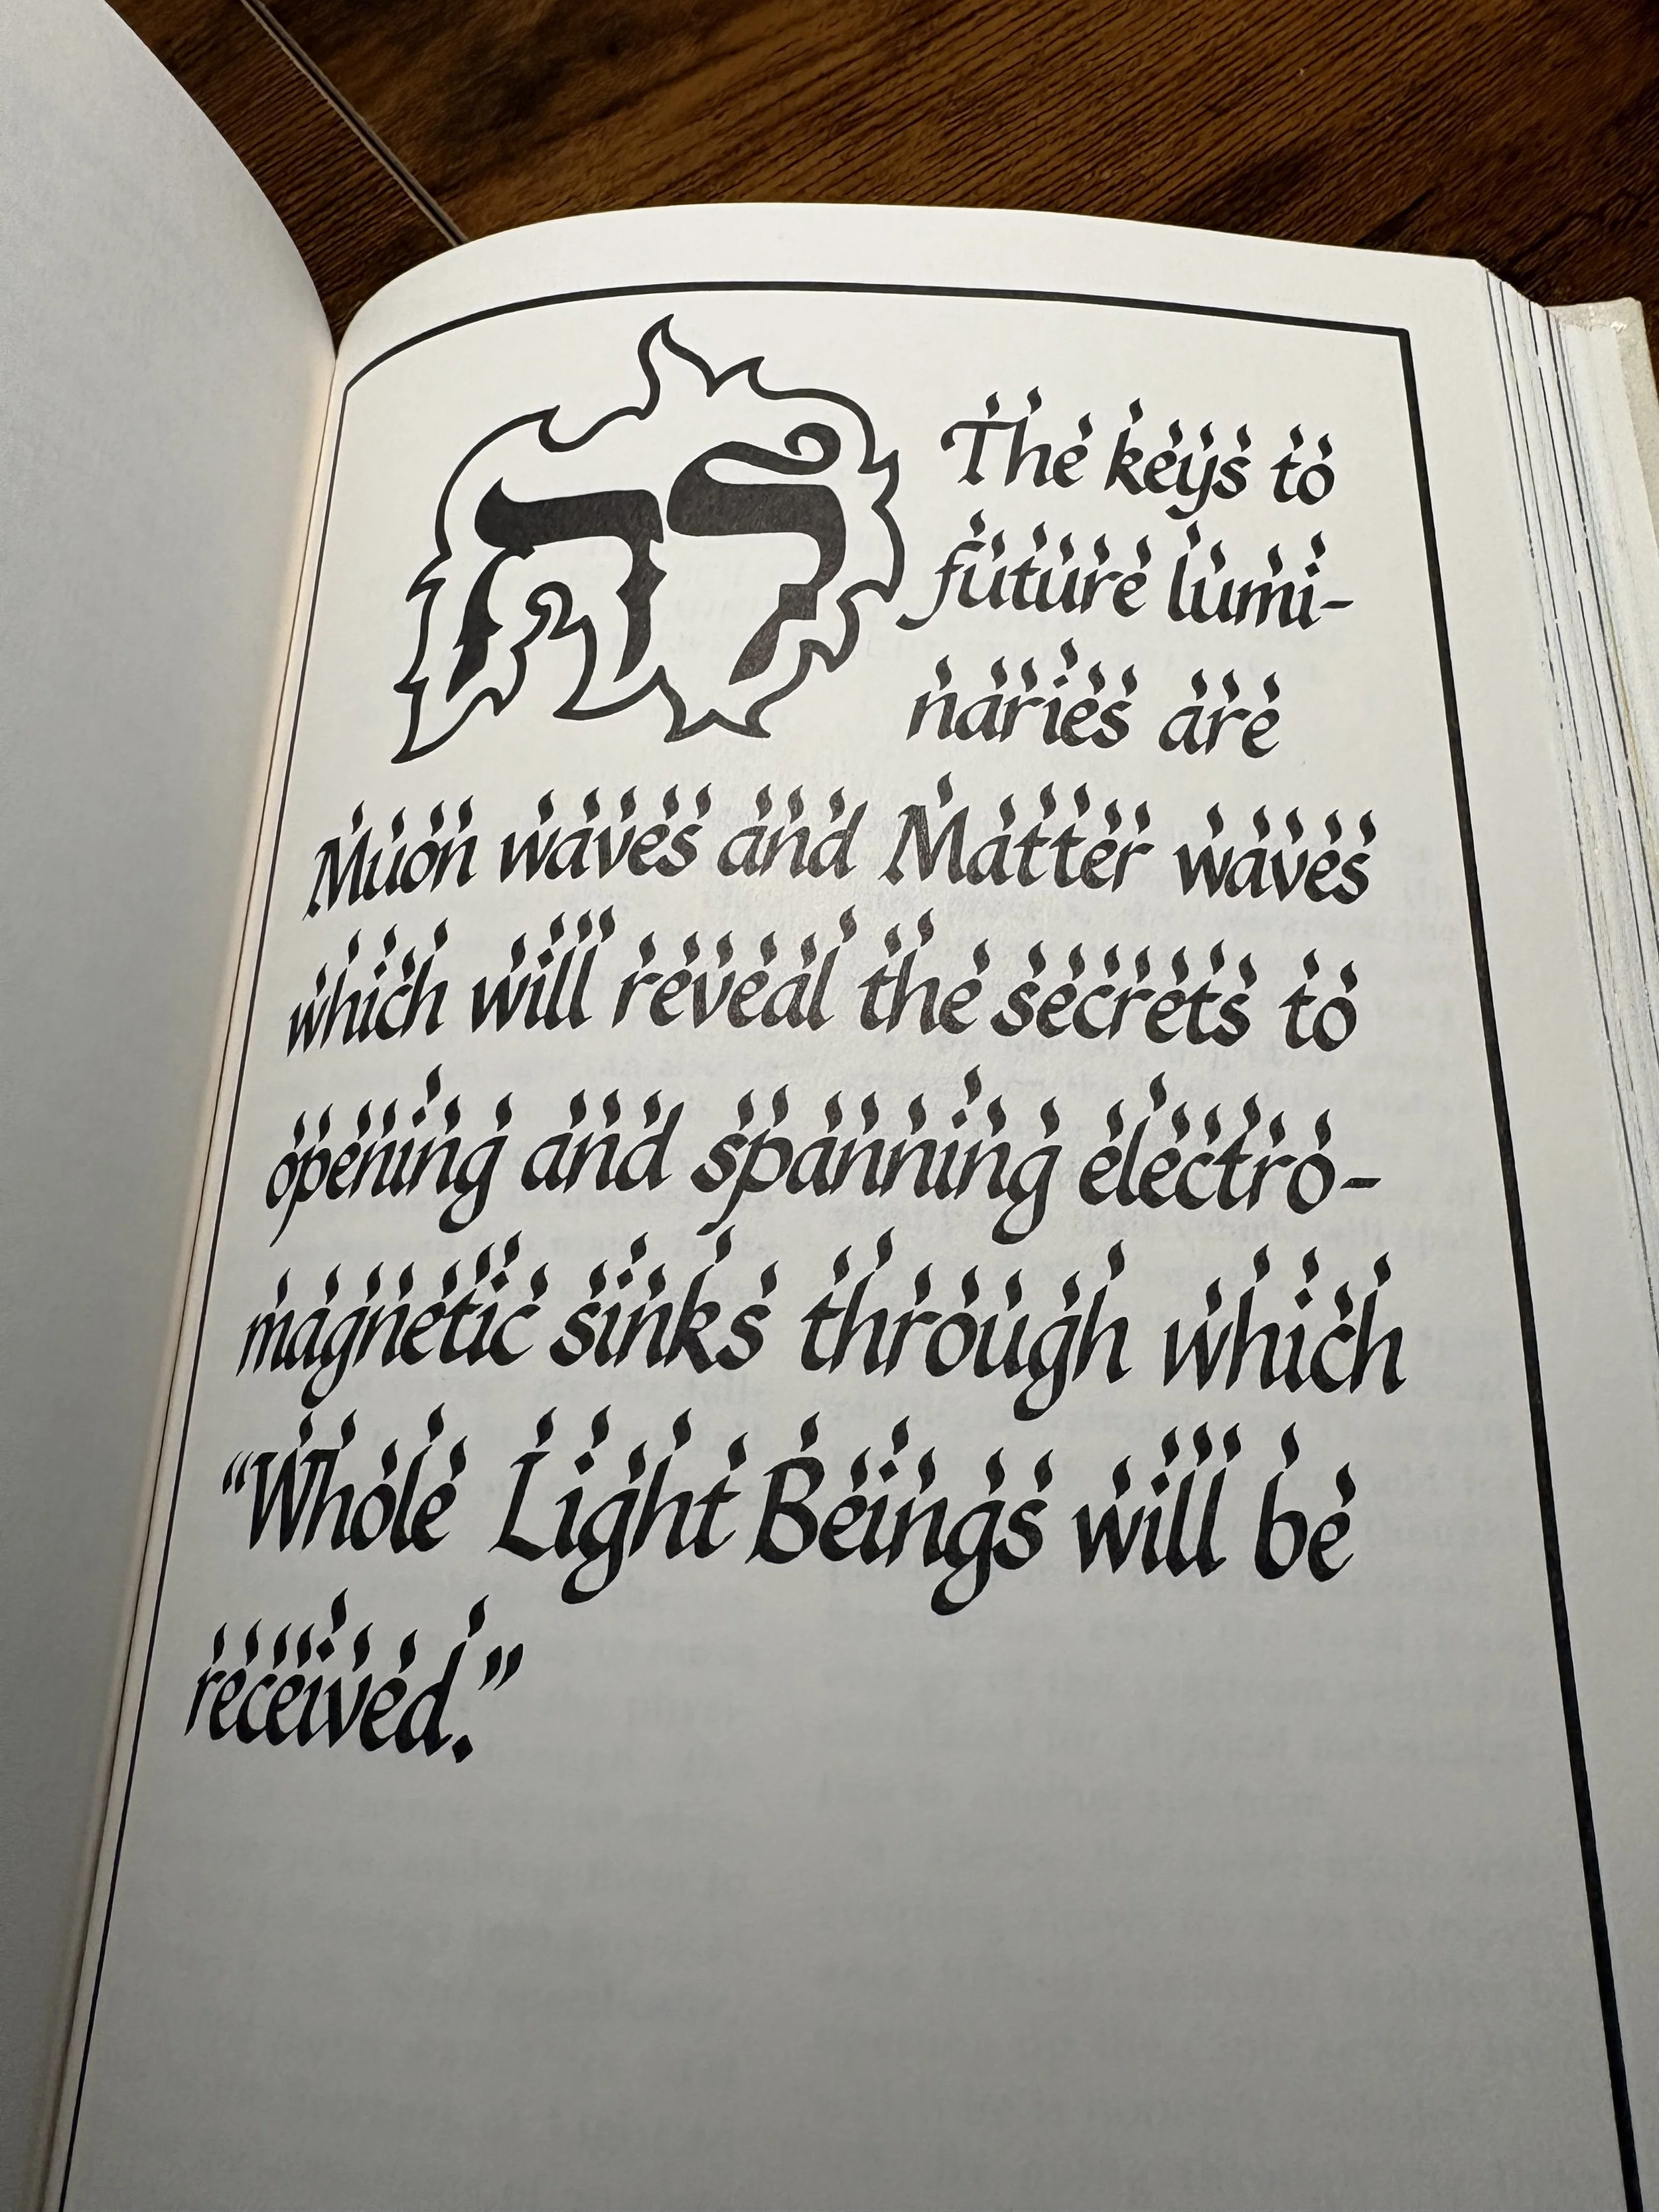 The keys to
future lumi-
naries are
Muon waves and Matter waves
which will reveal the secrets to
opening and spanning electro-
magnetic sinks through which
“Whole Light Beings will be
received.”